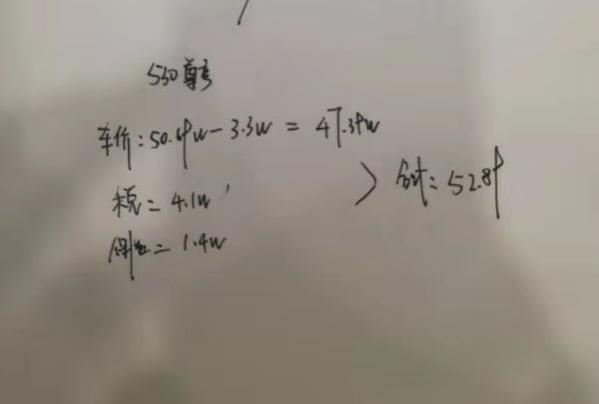 530尊享
车价:50.69w-3.3w = 47.39w
税=4.1w
保险=1.4w
> 合计:52.89